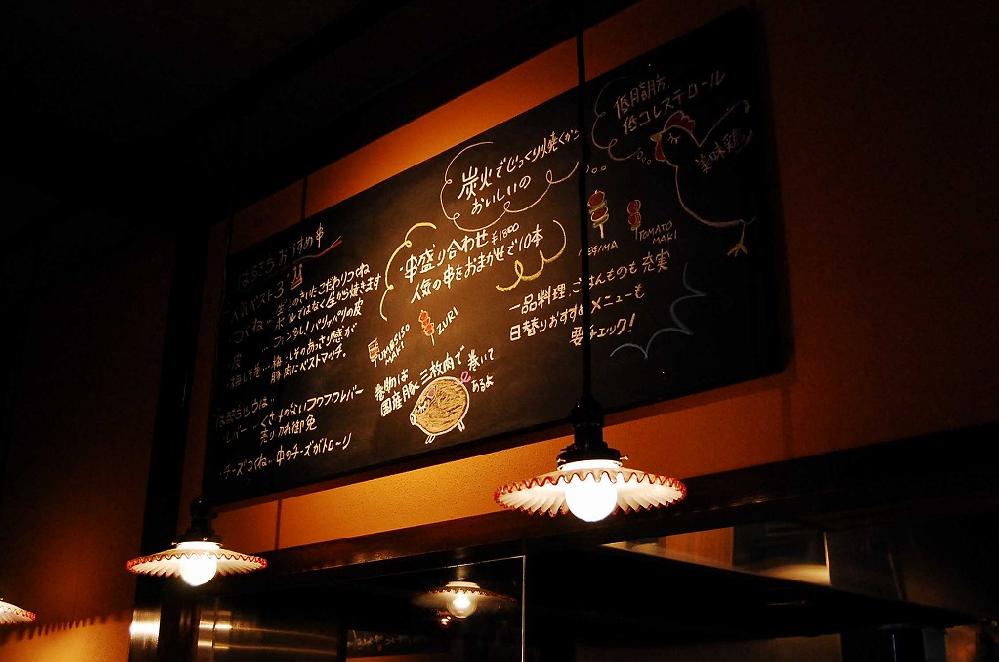 おすすめ串
人気ベスト3
つくね… 生のきいたこだわりつくね
ボイルではなく生から焼きます
皮… ファン多し!パリッパリの皮
梅しそ巻… 梅しそのあっさり感が
豚肉にベストマッチ。
レバー… くさみがないフワフワレバー
売り切れ御免
チーズつくね… 中のチーズがトロ〜リ
炭火でじっくり焼くから
おいしいの
串盛り合わせ ¥1800
人気の串をおまかせで10本
UMESISO
MAKI
ZURI
巻物は
国産豚三枚肉で巻いて
あるよ
低脂肪、
低コレステロール
美味鶏
NEGIMA
TOMATO
MAKI
一品料理、ごはんものも充実
日替りおすすめメニューも
要チェック!